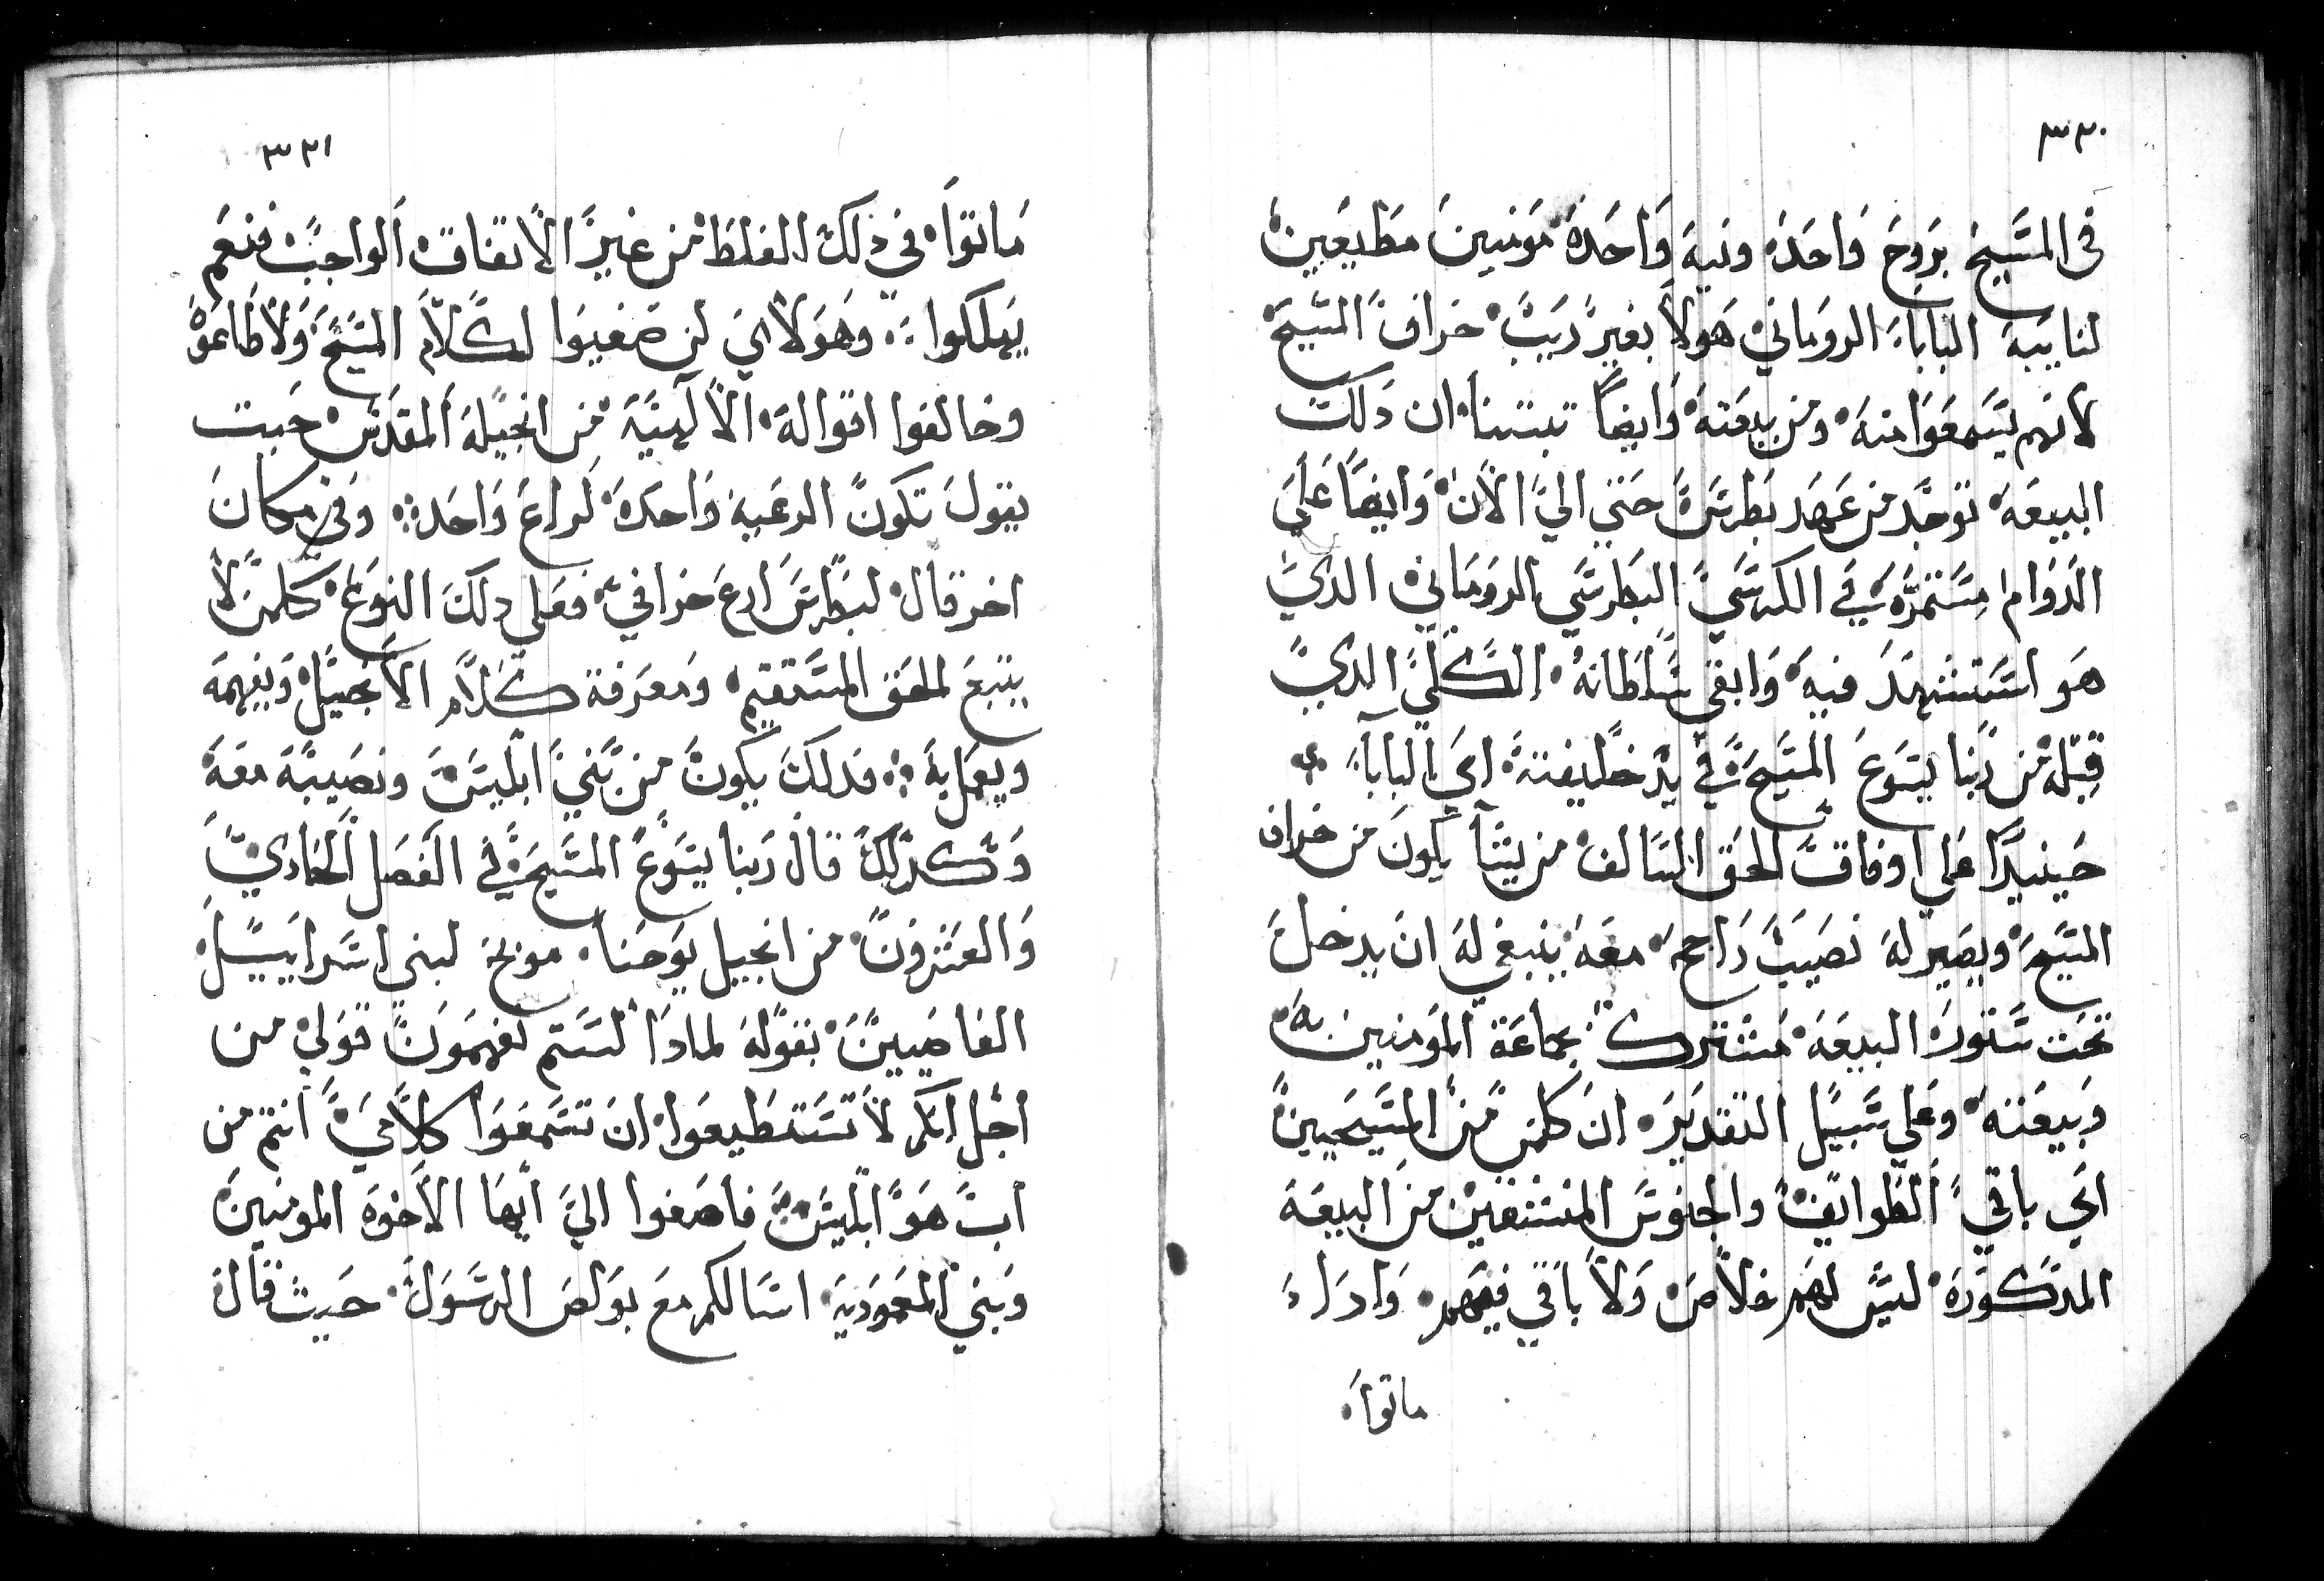 ٣٣٠
في المسيح بروح واحده ونيه واحده مومنين مطيعين
لنايبه البابا الروماني هولا بغير ريب خراف المسيح
لانهم يسمعوا منه ومن بيعته وايضا تبتنا ان دلك
البيعه توجد من عهد بطرس حتي الي الان وايضا علي
الدوام مستمره في الكرسي البطرسي الروماني الدي
هو استشهد فيه وابقي سلطانه الكلي الدي
قبله من ربنا يسوع المسيح في يد خليفته اي البابا
حينيدا علي اوفاق الحق السالف من يشا يكون من خراف
المسيح ويصير له نصيب راجح معه ينبغي له ان يدخل
تحت ستوره البيعه مشترك بجماعة المومنين به
وبيعته وعلي سبيل التقدير ان كلمن من المسيحيين
اي باقي الطوايف والجنوس المنشقين من البيعه
المدكوره ليس لهم خلاص ولا باقي فيهم وادا
ماتوا
٣٣١
ماتوا في ذلك الغلط من غير الاتفاق الواجب فنعم
يهلكوا وهولاي لن صغيوا لكلام المسيح ولا طاعوه
وخالفوا اقواله الالهيه من انجيله المقدس حيت
يقول تكون الرعيه واحده لراع واحد وفي مكان
اخر قال لبطرس ارع خرافي فعلي دلك النوع كلمن لا
يتبع الحق المستقيم ومعرفة كلام الانجيل ويفهمه
ويعمل به فدلك يكون من بني ابليس ونصيبه معه
وكدلك قال ربنا يسوع المسيح في الفصل الحادي
والعشرون من انجيل يوحنا موبخ لبني اسراييل
العاصيين بقوله لمادا لستم تفهمون قولي من
اجل انكم لا تستطيعوا ان تسمعوا كلامي انتم من
اب هو ابليس فاصغوا الي ايها الاخوه المومنين
وبني المعموديه اسالكم مع بولص الرسول حيث قال